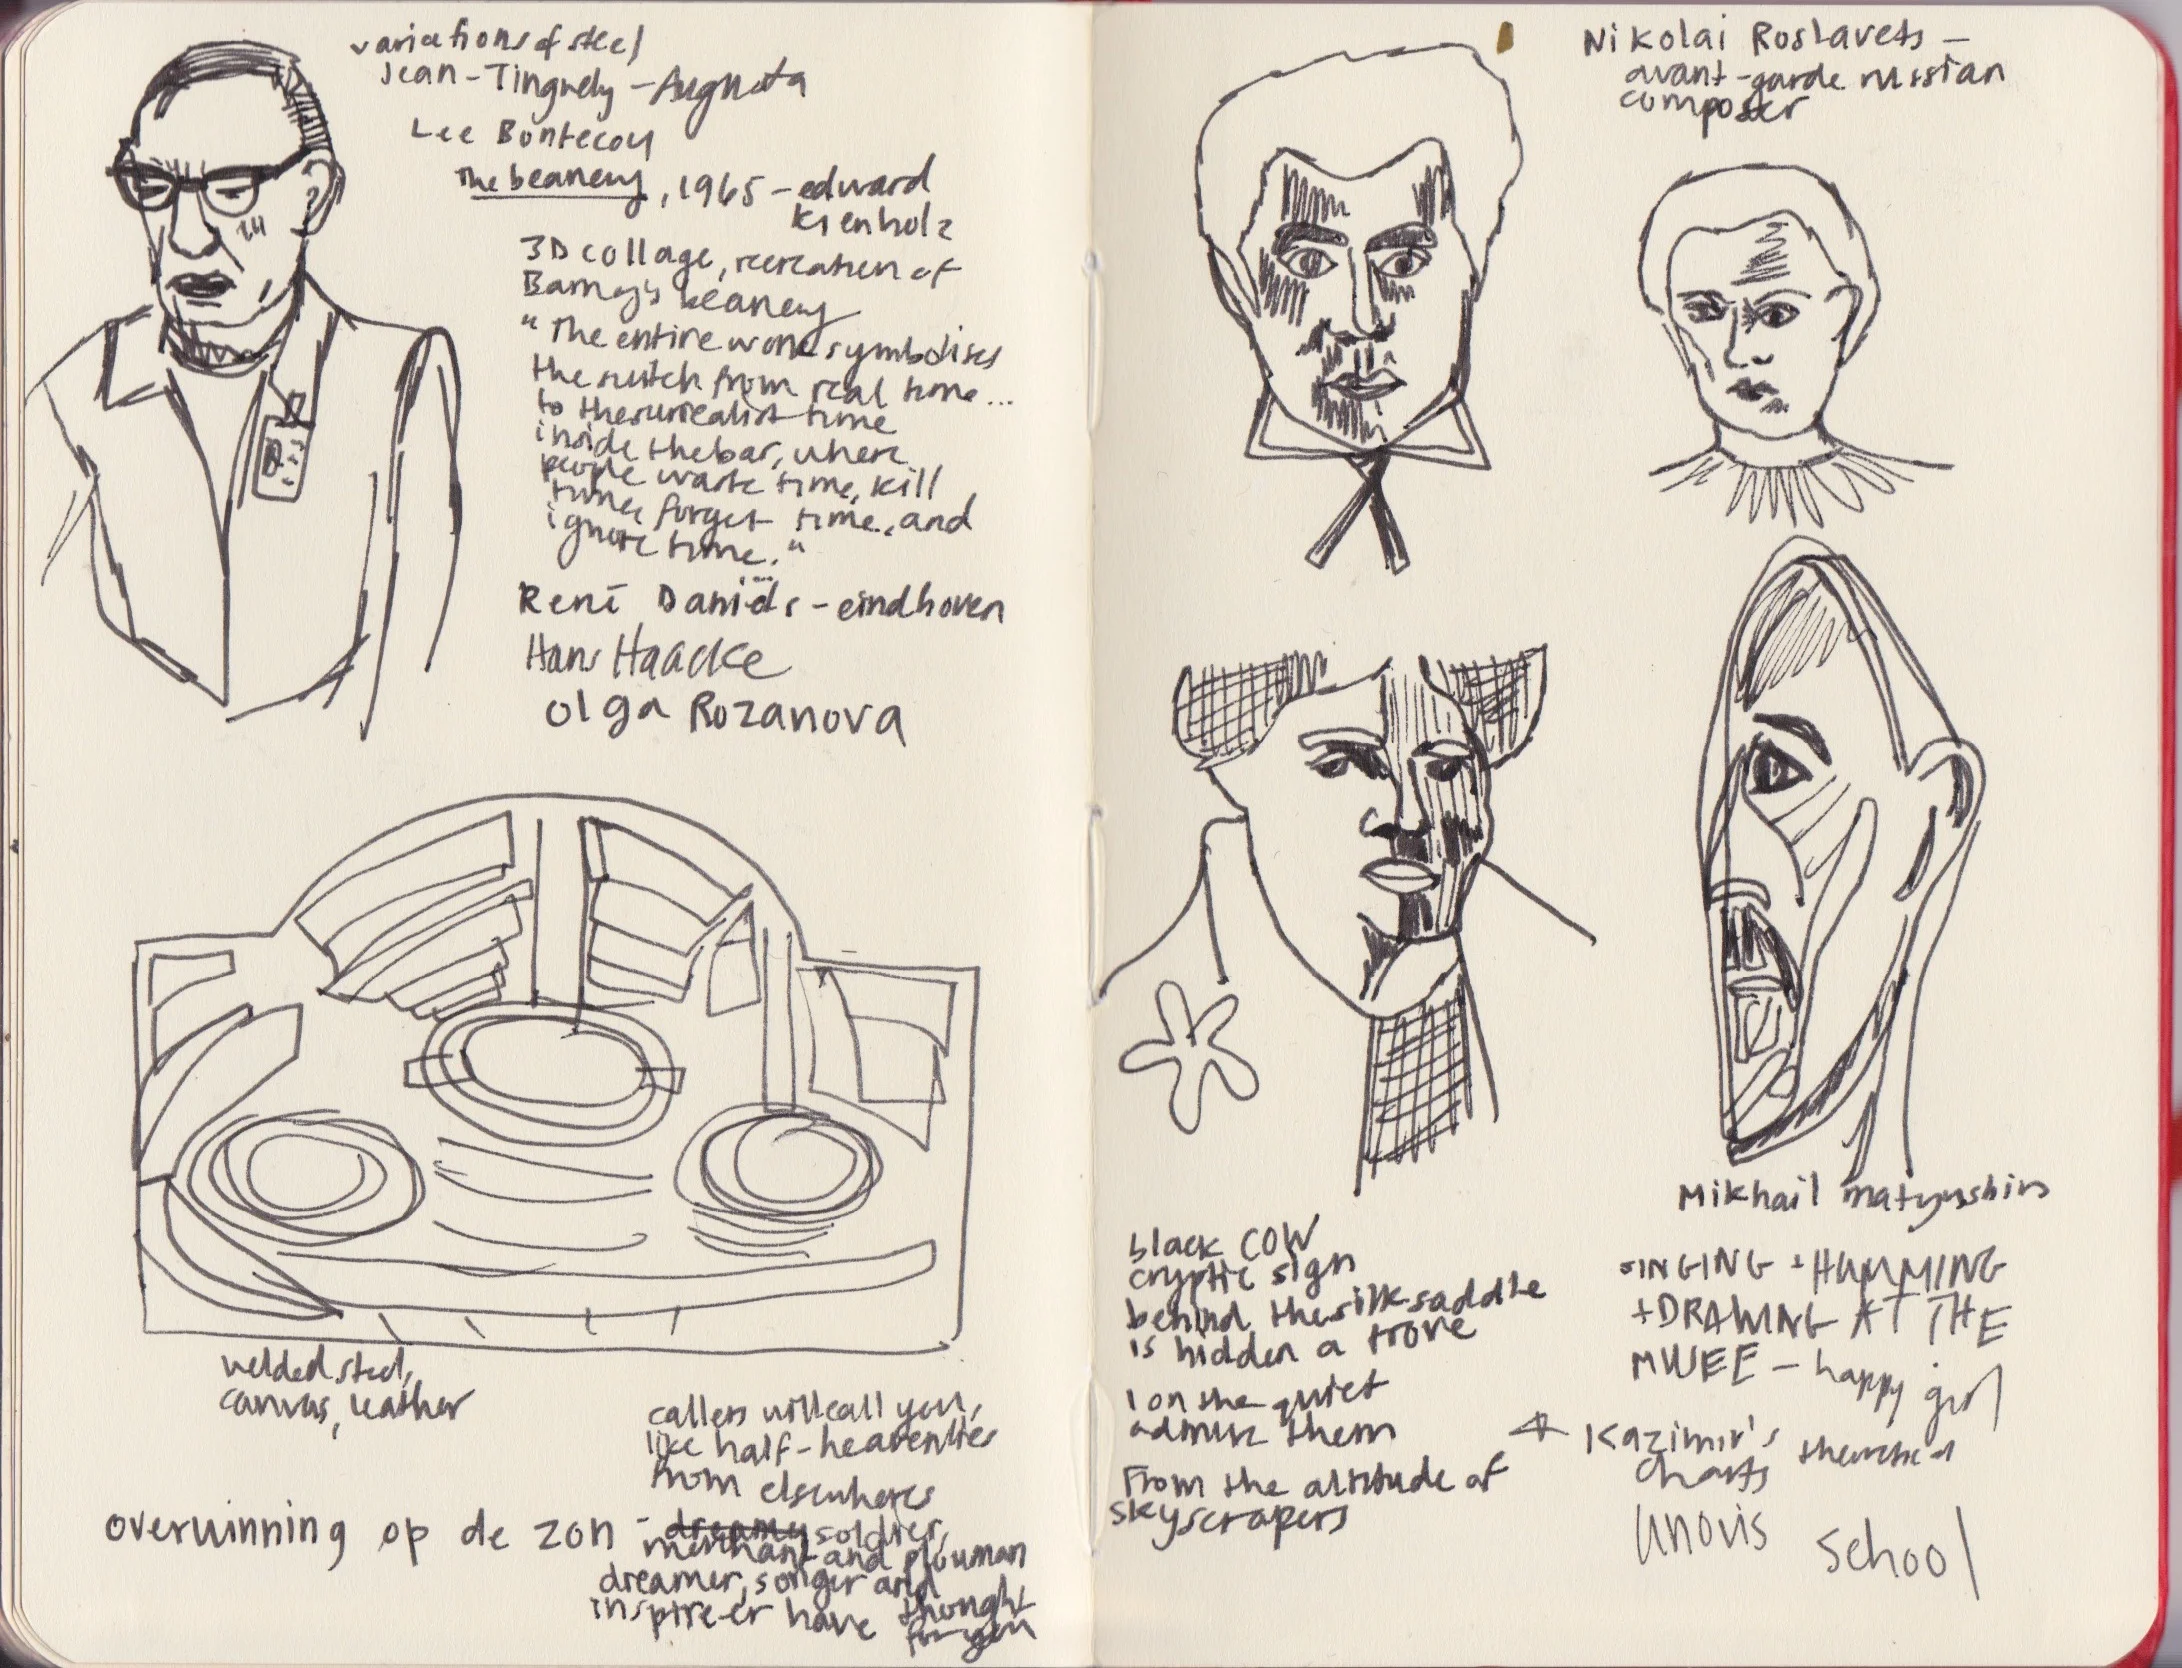 variations of steel
Jean-Tinguely - Augusta
Lee Bontecou
The beanery, 1965 - edward
kienholz
3D collage, recreation of
Barney's beanery
"The entire work symbolises
the switch from real time...
to the surrealist time
inside the bar, where
people waste time, kill
time, forget time, and
ignore time."
René Daniëls - eindhoven
Hans Haacke
olga Rozanova
welded steel,
canvas, leather
callers will call you,
like half-heavenlies
from elsewheres
overwinning op de zon - dreamy soldier,
merchant and plouman
dreamer, songer and
inspire-er have thought
for you
Nikolai Roslavets -
avant-garde russian
composer
Mikhail matyushin
black COW
cryptic sign
behind the silk saddle
is hidden a trove
I on the quiet
admire them
From the altitude of
skyscrapers
SINGING + HUMMING
+ DRAWING AT THE
MUEE - happy girl
Kazimir's theoretical
charts
UNOVIS
School